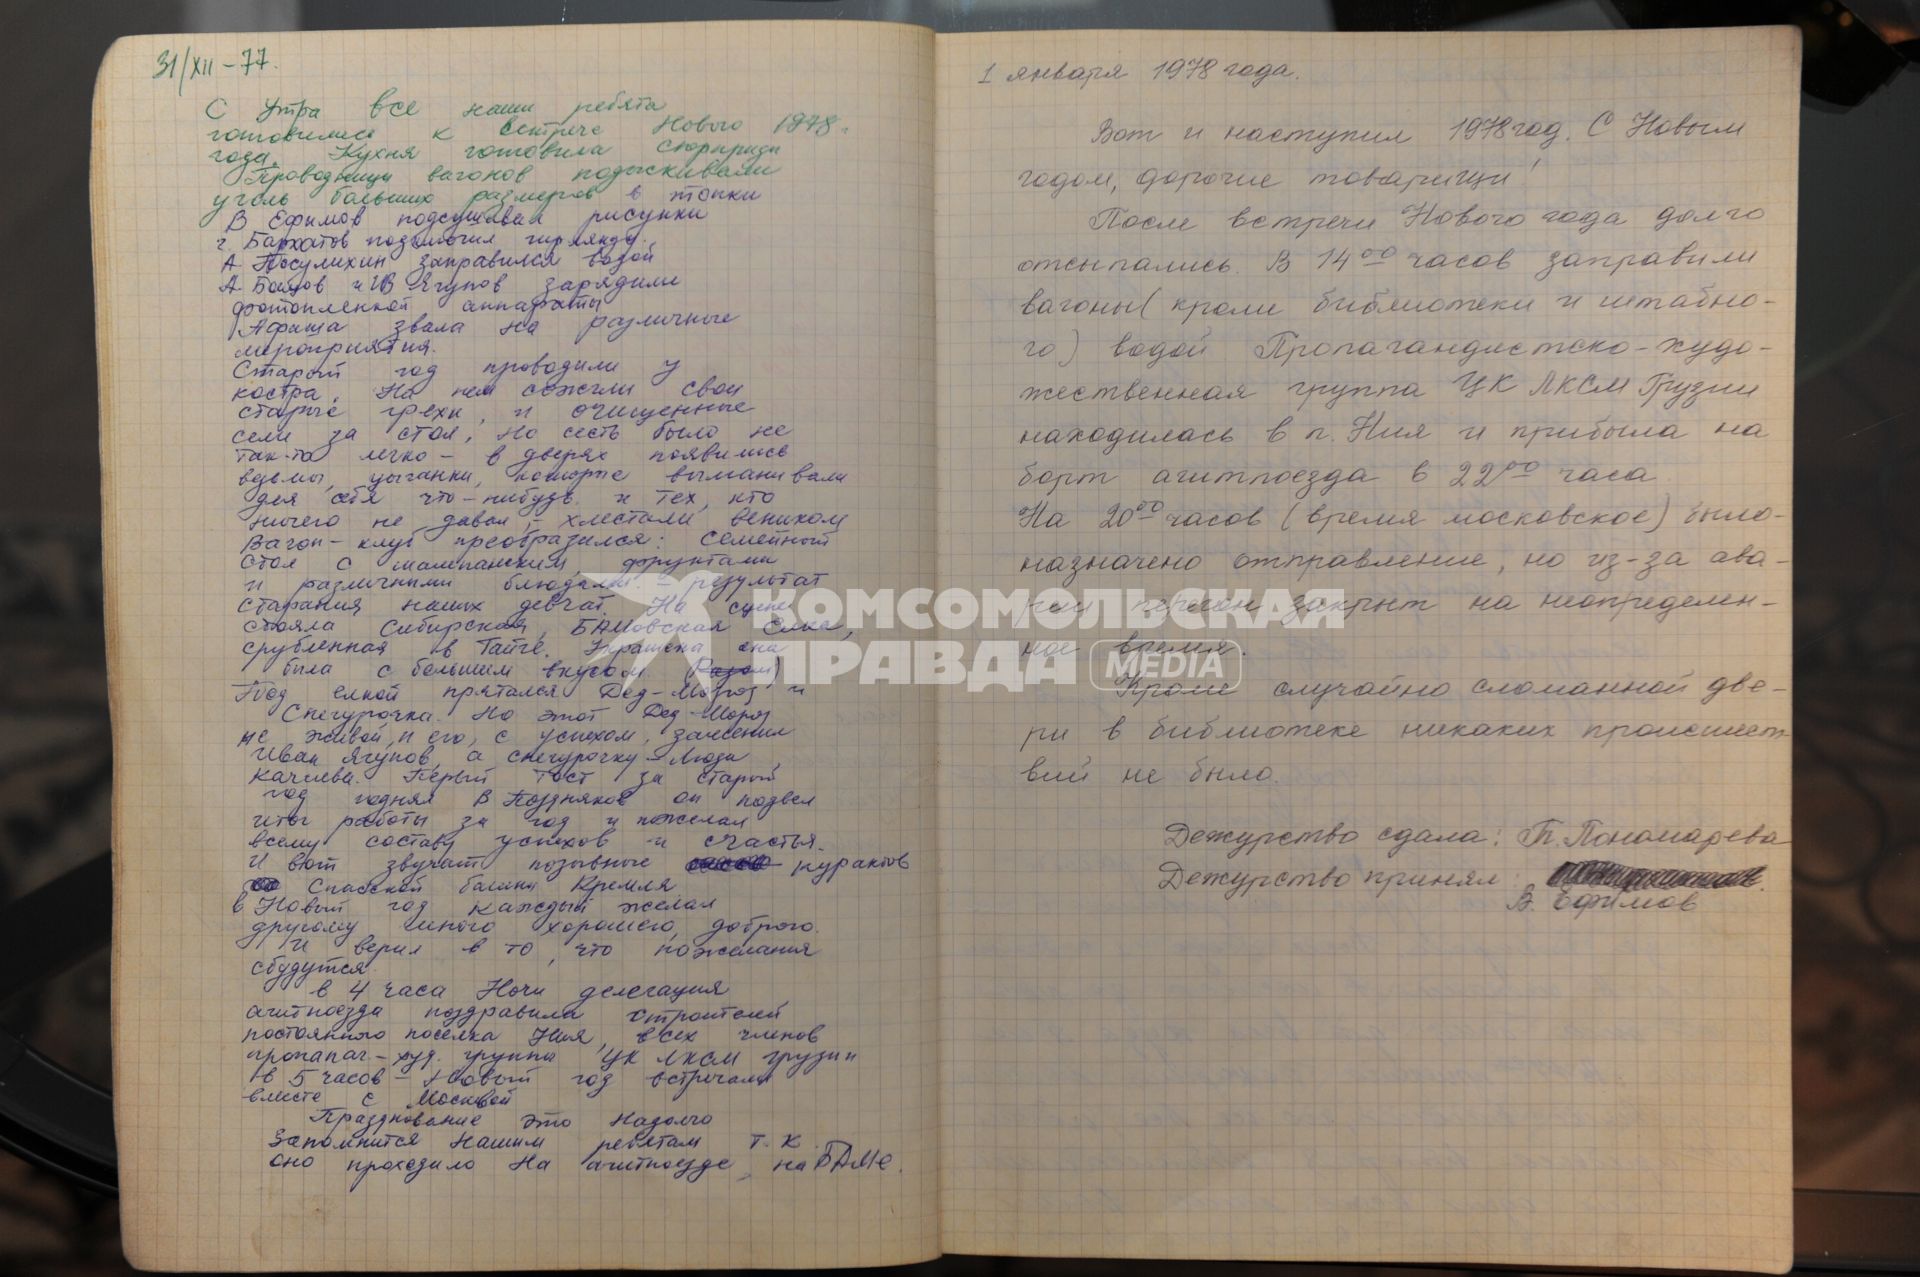 31/XII – 77.
С Утра все наши ребята
готовились к встрече Нового 1978-
года. Кухня готовила сюрпризы
Проводницы вагонов подыскивали
уголь больших размеров в топки
В Ефимов подсушивал рисунки
г. Бархатов подключил гирлянду.
А. Посулихин заправился водой
А. Бацов и ИВ Ягупов зарядили
фотопленкой аппараты
Афиша звала на различные
мероприятия.
Старый год проводили у
костра. На нем сожгли свои
старые грехи, и очищенные
сели за стол, но сесть было не
так-то легко – в дверях появились
ведьмы, цыганки, которые выманивали
для себя что-нибудь. и тех, кто
ничего не давал, – хлестали веником
Вагон-клуб преобразился: семейный
стол с шампанским, фруктами
и различными блюдами. – результат
старания наших девчат. На сцене
стояла Сибирская, БАМовская Елка,
срубленная в Тайге. Украшена она
была с большим вкусом.
Под елкой прятался Дед-Мороз и
Снегурочка. Но этот Дед-Мороз
не живой, и его, с успехом, заменил
Иван Ягупов, а снегурочку – Люда
Качиева. Первый тост за старый
год поднял В Поздняков он подвел
итог работы за год и пожелал
всему составу успехов и счастья.
И вот звучат позывные курантов
Спасской башни Кремля
в Новый год каждый желал
другому много хорошего, доброго.
И верил в то, что пожелания
сбудутся.
в 4 часа Ночи делегация
агитпоезда поздравила строителей
постоянного поселка Ния, всех членов
пропаган-худ. группы ЦК ЛКСМ Грузии
в 5 часов – Новый год встречали
вместе с Москвой
Празднование это надолго
Запомнится Нашим ребятам т. к.
оно проходило На агитпоезде, на БАМе.
1 января 1978 года.
Вот и наступил 1978 год. С Новым
годом, дорогие товарищи!
После встречи Нового года долго
отсыпались. В 14 00 часов заправили
вагоны (кроме библиотеки и штабно-
го) водой Пропагандистско-худо-
жественная группа ЦК ЛКСМ Грузии
находилась в п. Ния и прибыла на
борт агитпоезда в 22 00 часа.
На 20 00 часов (время московское) было
назначено отправление, но из-за ава-
рии перегон закрыт на неопределен-
ное время.
Кроме случайно сломанной две-
ри в библиотеке никаких происшест-
вий не было.
Дежурство сдала: Т. Пономарева
Дежурство принял:
В. Ефимов
КОМСОМОЛЬСКАЯ
ПРАВДА MEDIA